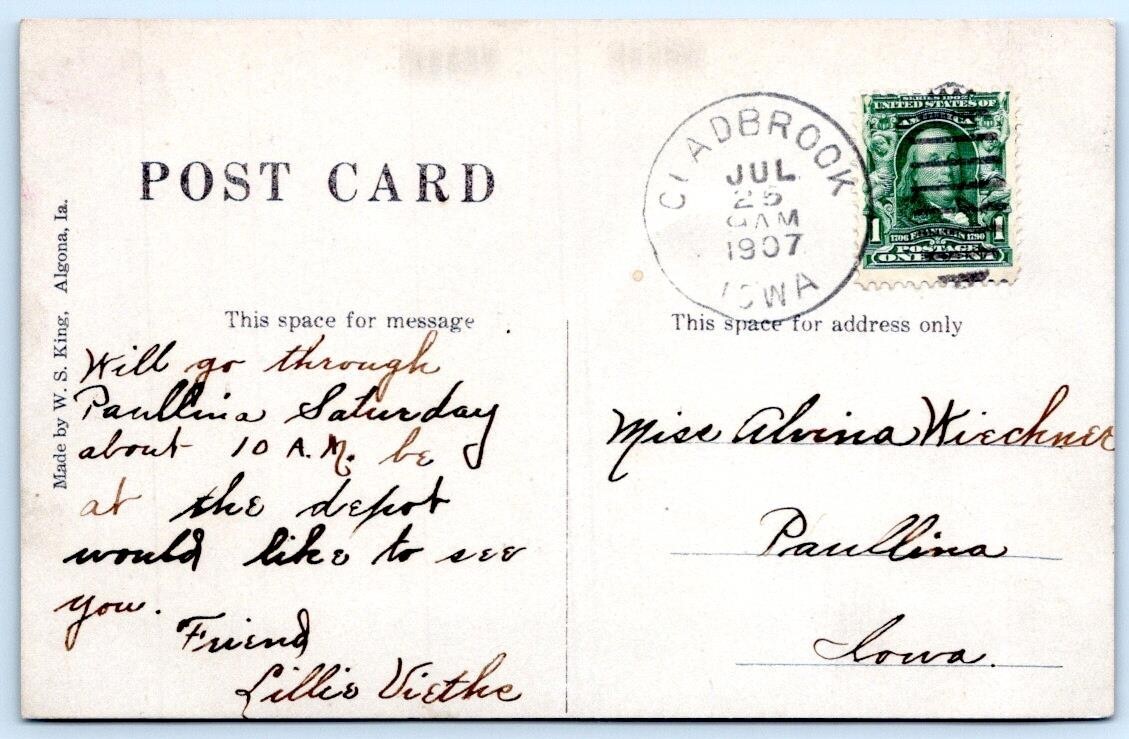 POST CARD
Made by W. S. King, Algona, Ia.
This space for message
Will go through
Paullina Saturday
about 10 A.M. be
at the depot
would like to see
you.
Friend
Lillie Viethe
GLADBROOK
JUL
25
9 AM
1907
IOWA
SERIES 1902
UNITED STATES OF
AMERICA
1 1706 FRANKLIN 1790 1
POSTAGE
ONE CENT
This space for address only
Miss Alvina Wiechner
Paullina
Iowa.